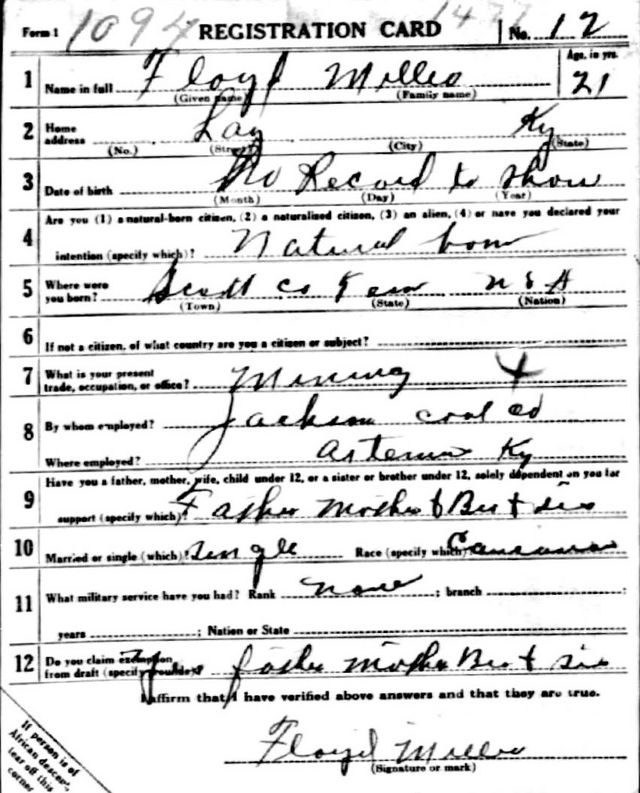 Form 1 1094 REGISTRATION CARD No. 12
1 Name in full Floyd Miller Age, in yrs. 21
(Given name) (Family name)
2 Home address Lay Ky
(No.) (Street) (City) (State)
3 Date of birth No Record to show
(Month) (Day) (Year)
4 Are you (1) a natural-born citizen, (2) a naturalized citizen, (3) an alien, (4) or have you declared your
intention (specify which)? Natural born
5 Where were you born? Scott co Tenn U S A
(Town) (State) (Nation)
6 If not a citizen, of what country are you a citizen or subject?
7 What is your present trade, occupation, or office? Mining
8 By whom employed? Jackson coal co
Where employed? Artemus Ky
9 Have you a father, mother, wife, child under 12, or a sister or brother under 12, solely dependent on you for
support (specify which)? Father Mother & Bro + sis
10 Married or single (which)? Single Race (specify which)? Caucasian
11 What military service have you had? Rank None ; branch ;
years ; Nation or State
12 Do you claim exemption from draft (specify grounds)? father Mother Bro + sis
I affirm that I have verified above answers and that they are true.
Floyd Miller
(Signature or mark)
If person is of
African descent,
tear off this
corner